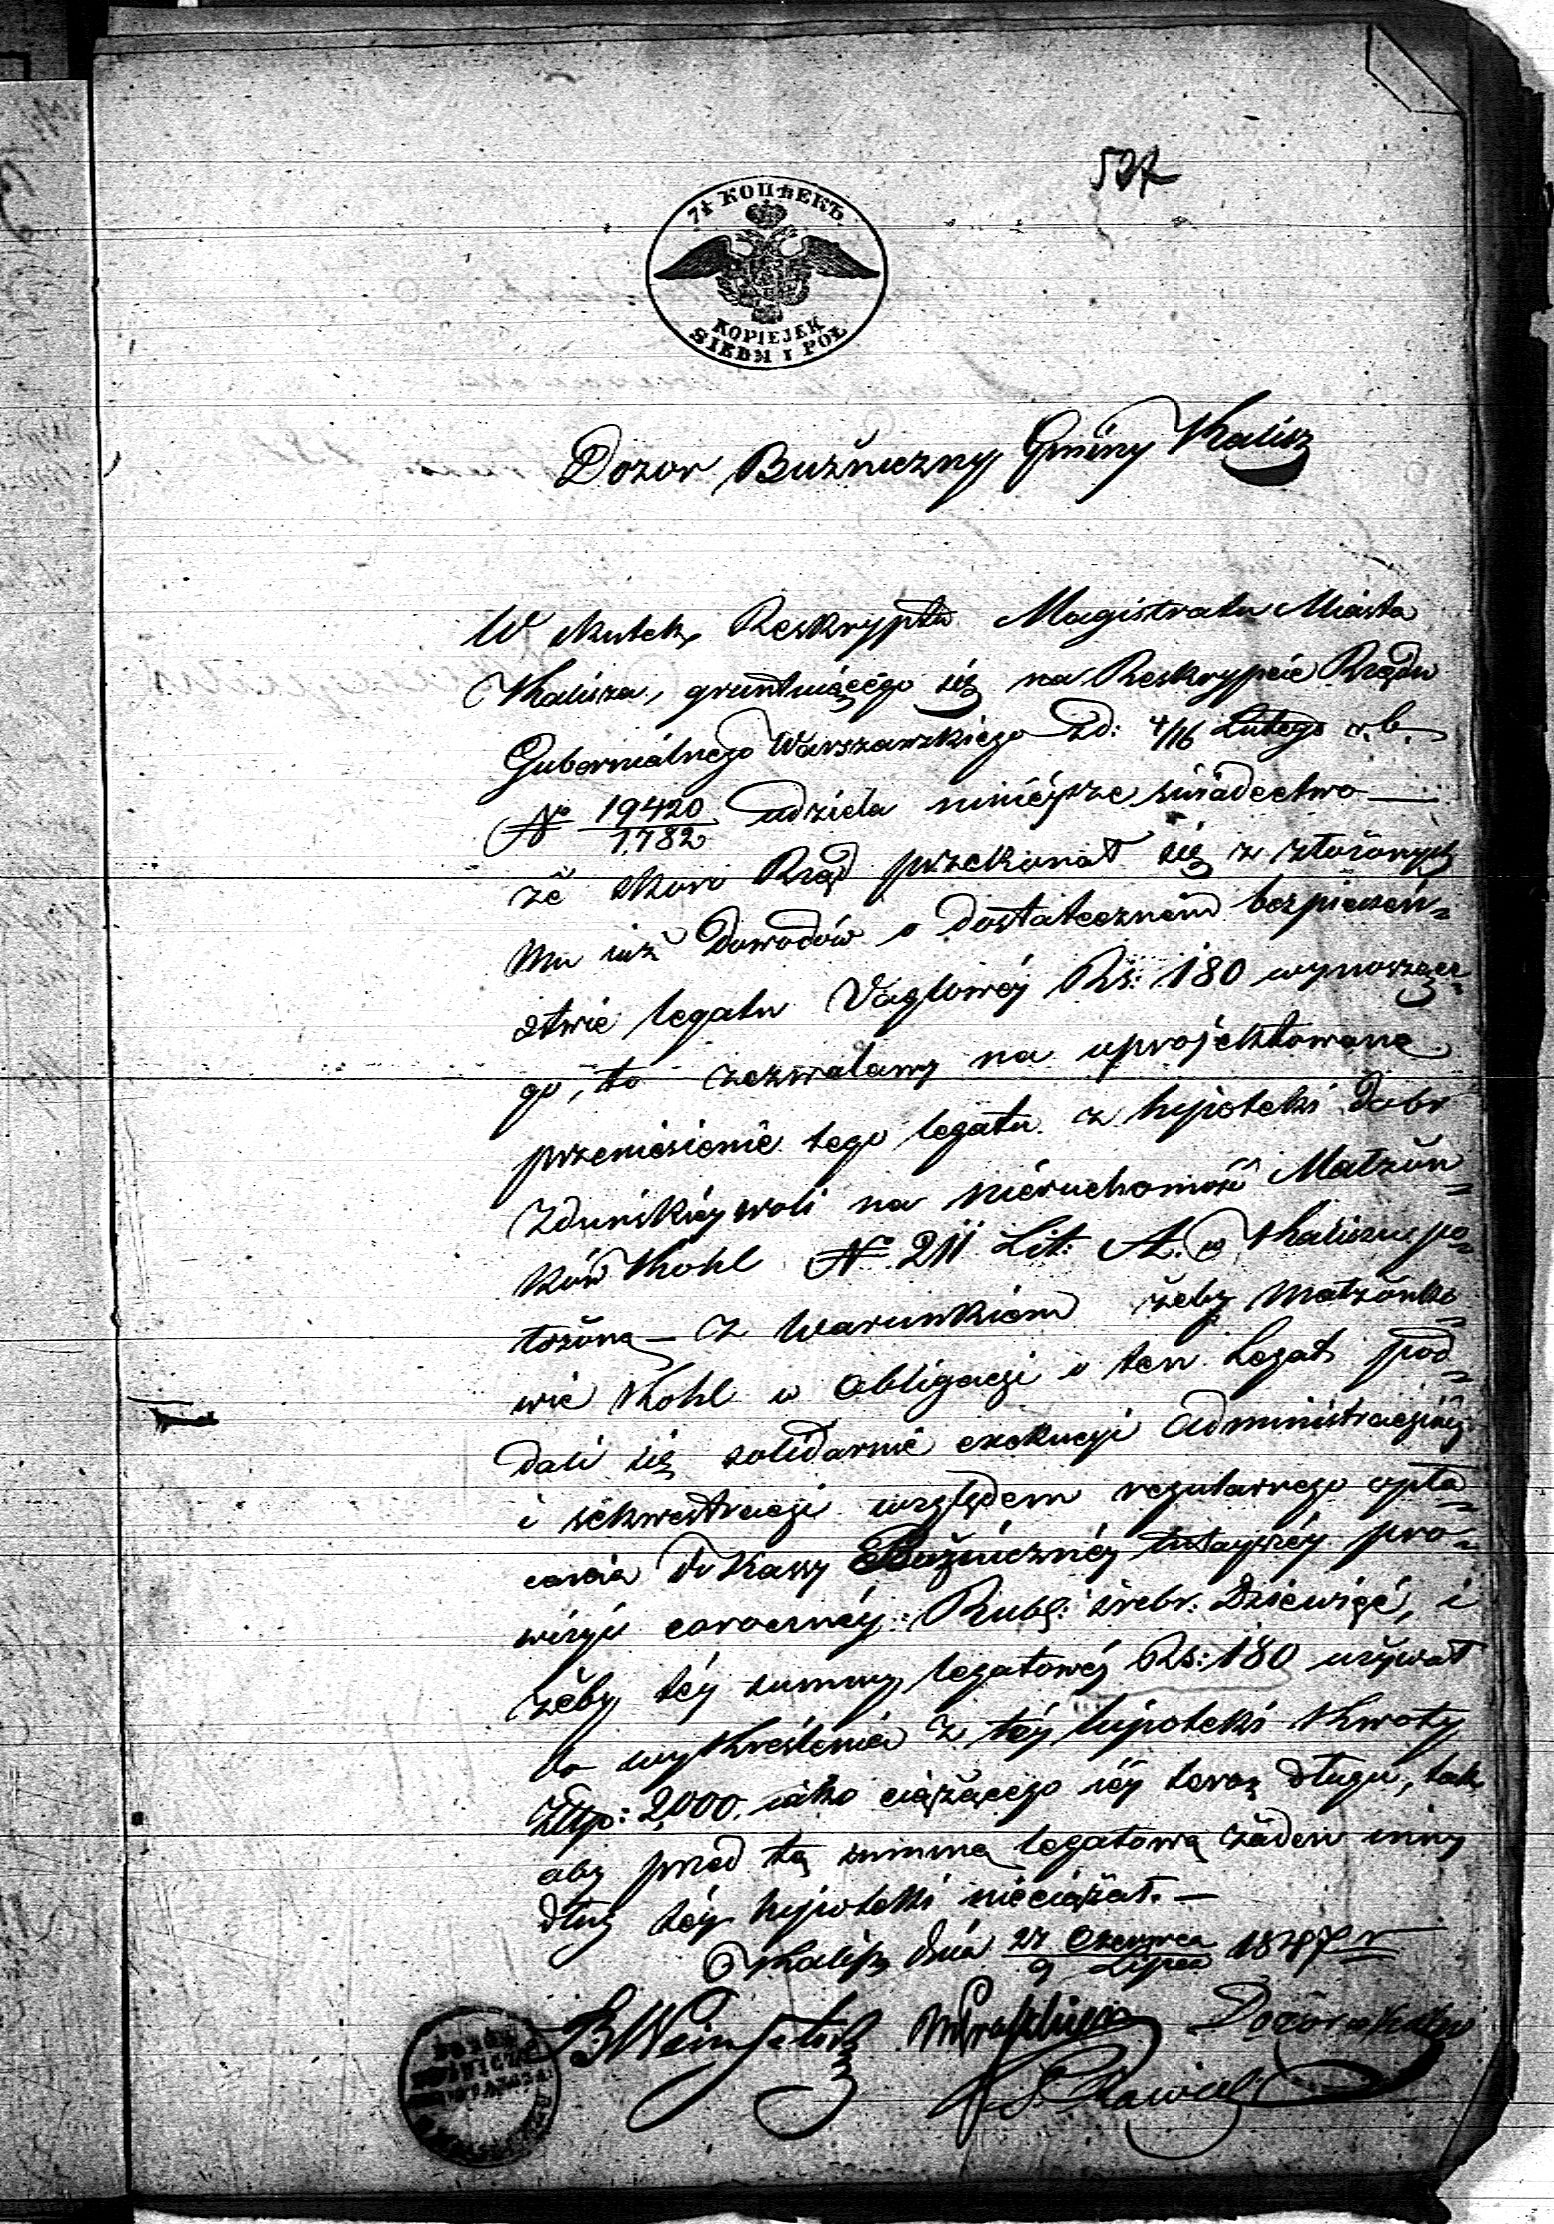 7½ КОПѢЕКЪ
KOPIEJEK
SIEDM I PÓŁ
Dozór Bużniczny Gminy Kalisz
W skutek Reskryptu Magistratu Miasta
Kalisza, gruntuiącégo się na Reskrypcie Rządu
Gubernialnego Warszawskiego z d: 4/16 Lutego r. b.
No 19420/1782 udziela niniéysze świadectwo —
że skoro Rząd przekonał się z złożonych
Mu iuż Dowodów o dostatecznem bezpieczeń=
stwie legatu Vaglowéy Rs: 180 wynoszące=
go, to zezwalamy na uprojektowane
przeniesienie tego legatu z hypoteki Dobr
Zduńskiéy woli na nieruchomość Małżon=
ków Kohl No. 211 Lit: A. w Kaliszu po=
łożoną — z warunkiem żeby Małżonko=
wie Kohl w obligacyi o ten Legat pod=
dali się solidarnie exekucyi administracyinéy
i sekwestracyi względem regularnego opła=
cania do Kassy Bużniczney tutayszéy pro=
wizyi coroczney: Rubl: srebr: Dziewięć, i
żeby téy summy legatowéj Rs: 180 używał
do wykreślenia z téy hypoteki Kwoty
Złtp: 2,000. iako ciążącego iéy teraz długu, tak
aby przed tą summą legatową żaden inny
dług téy hypoteki nieciążał. —
Kalisz dnia 27 Czerwca/9 Lipca 1847 r